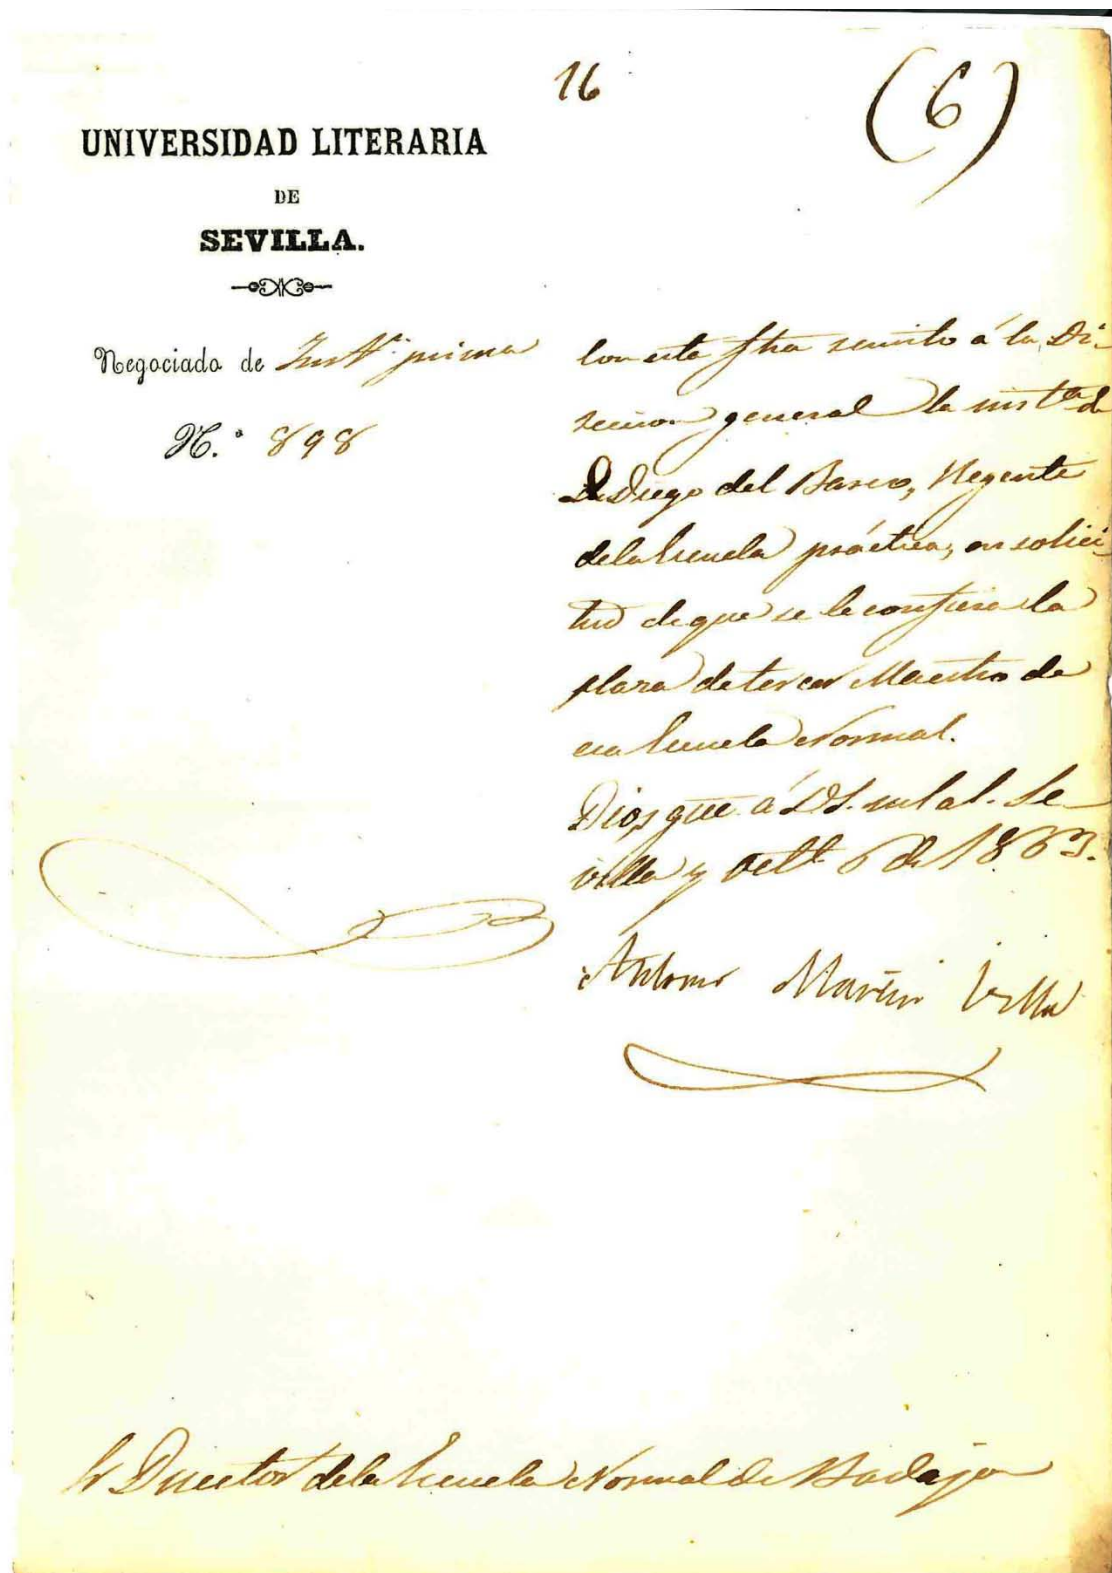 16
(6)
UNIVERSIDAD LITERARIA
DE
SEVILLA.
Negociado de Instⁿ prima
N.º 898
Con esta fha remito á la Di-
reccion general la instᵃ de
D. Diego del Barco, Regente
de la Escuela práctica, en solici-
tud de que se le confiera la
plaza de tercer Maestro de
esa Escuela Normal.
Dios gue á V.S. m.s a.s. Se-
villa y Oct.e 6 de 1863.
Antonio Martin Villa
Sr Director de la Escuela Normal de Badajoz